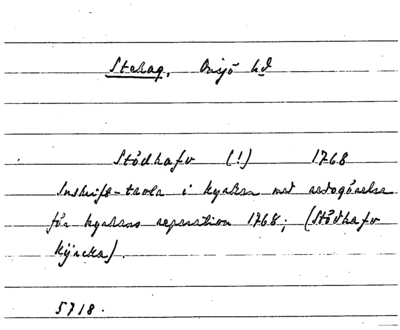 Stehag, Onsjö hd
Stödhafv (!) 1768
Inskrift-tavla i kyrkan med redogörelse
för kyrkans reparation 1768; (Stödhafv
Kÿrcka).
5718.